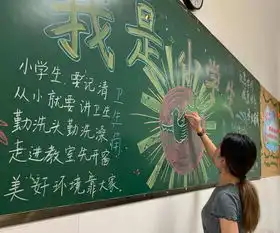 我是小学生
小学生，要记清
从小就要讲卫生
勤洗头勤洗澡
走进教室先开窗
美好环境靠大家.